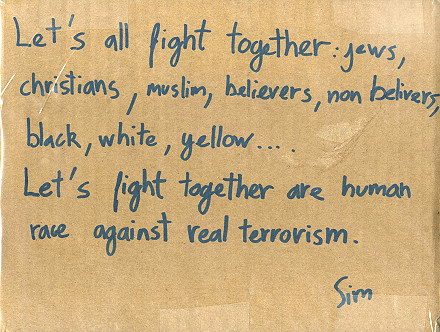 Let's all fight together: jews,
christians, muslim, believers, non belivers,
black, white, yellow....
Let's fight together are human
race against real terrorism.
Sim